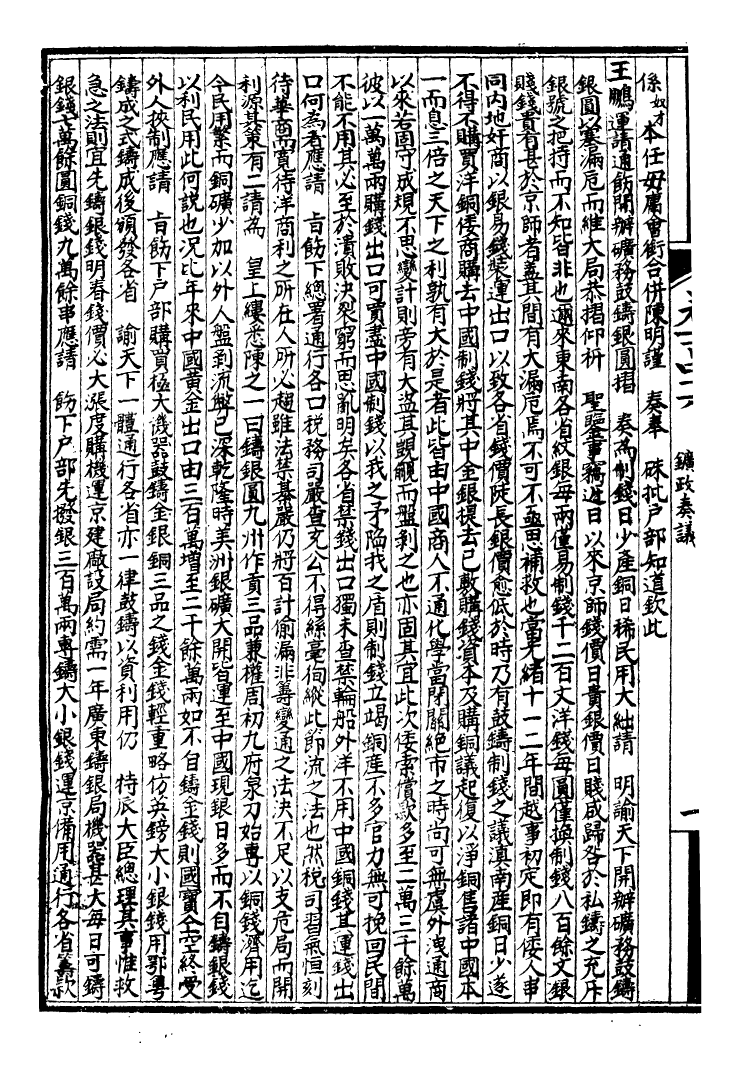 係奴才本任毋庸會銜合併陳明謹　奏奉　硃批戶部知道欽此
王鵬運請通飭開辦礦務鼓鑄銀圓摺　奏為制錢日少產銅日稀民用大絀請　明諭天下開辦礦務鼓鑄
銀圓以塞漏卮而維大局恭摺仰祈　聖鑒事竊近日以來京師錢價日貴銀價日賤咸歸咎於私鑄之充斥
銀號之把持而不知皆非也邇來東南各省紋銀每兩僅易制錢千二百文洋錢每圓僅換制錢八百餘文銀
賤錢貴有甚於京師者蓋其間有大漏卮焉不可不亟思補救也當光緒十一二年間越事初定即有倭人串
同內地奸商以銀易錢裝運出口以致各省錢價陡長銀價愈低於時乃有鼓鑄制錢之議滇南產銅日少遂
不得不購買洋銅倭商購去中國制錢將其中金銀提去已敷購錢資本及購銅議起復以淨銅售諸中國本
一而息三倍之天下之利孰有大於是者此皆由中國商人不通化學當閉關絕市之時尚可無虞外洩通商
以來若固守成規不思變計則旁有大盜其覬覦而盤剝之也亦固其宜此次倭索償款多至二萬三千餘萬
彼以一萬萬兩購錢出口可買盡中國制錢以我之矛陷我之盾則制錢立竭銅產不多官力無可挽回民間
不能不用其必至於潰敗決裂窮而思亂明矣各省禁錢出口獨未查禁輪船外洋不用中國銅錢其運錢出
口何為者應請　旨飭下總署通行各口稅務司嚴查充公不得絲毫徇縱此節流之法也然稅司習氣恒刻
待華商而寬待洋商利之所在人所必趨雖法禁綦嚴仍將百計偷漏非籌變通之法決不足以支危局而開
利源其策有二請為　皇上縷悉陳之一曰鑄銀圓九州作貢三品兼權周初九府泉刀始專以銅錢濟用迄
今民用繁而銅礦少加以外人盤剝流弊已深乾隆時美洲銀礦大開皆運至中國現銀日多而不自鑄銀錢
以利民用此何說也況比年來中國黃金出口由三百萬增至二千餘萬兩如不自鑄金錢則國寶全空終受
外人挾制應請　旨飭下戶部購買極大機器鼓鑄金銀銅三品之錢金錢輕重略仿英鎊大小銀錢用鄂粵
鑄成之式鑄成後頒發各省　諭天下一體通行各省亦一律鼓鑄以資利用仍　特派大臣總理其事惟救
急之法則宜先鑄銀錢明春錢價必大漲度購機運京建廠設局約需一年廣東鑄銀局機器甚大每日可鑄
銀錢七萬餘圓銅錢九萬餘串應請　飭下戶部先撥銀三百萬兩專鑄大小銀錢運京備用通行各省籌款
鑛政奏議
一